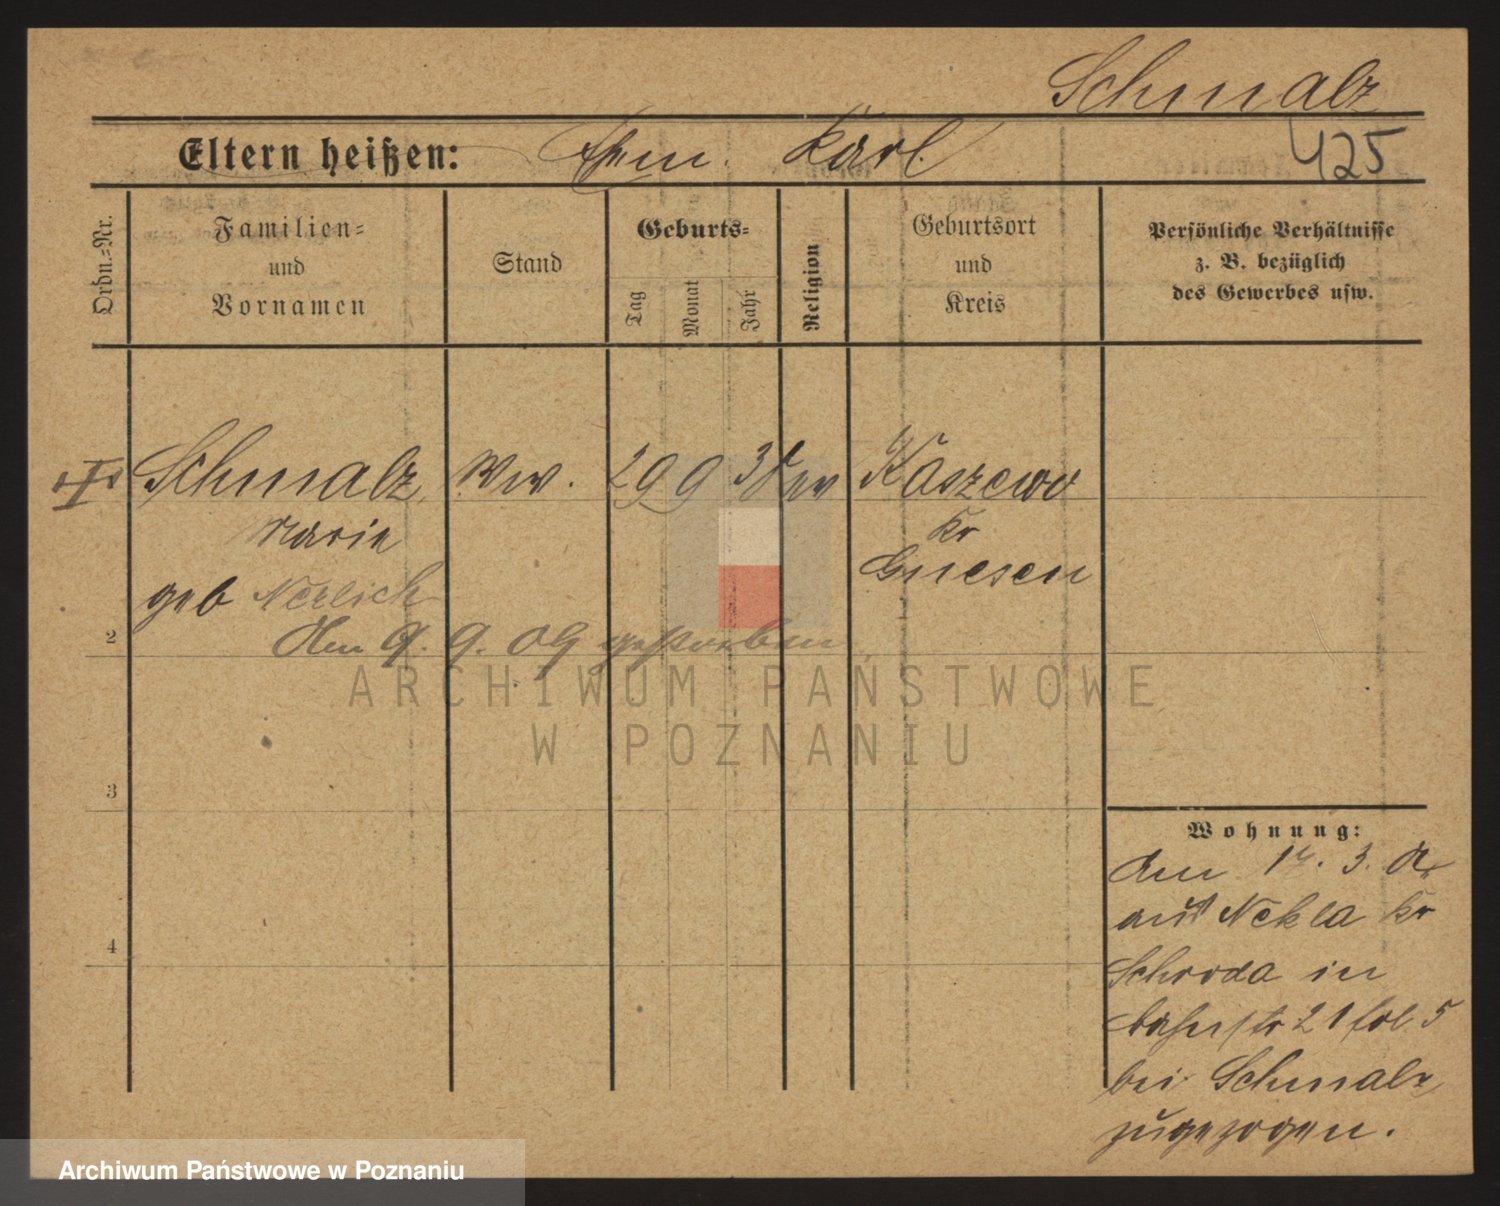 Schmalz
425
Eltern heißen: Ehm. Karl.
Ordn.=Nr.
Familien=
und
Vornamen
Stand
Geburts=
Tag
Monat
Jahr
Religion
Geburtsort
und
Kreis
Persönliche Verhältnisse
z. B. bezüglich
des Gewerbes usw.
Schmalz, Ww. 29 9 38 ev Kaszewo
Marie Kr
geb Nerlich Gnesen
2
Am 9. 9. 09 gestorben
3
4
Wohnung:
Am 3.
aus Nekla Kr
Schroda in
Bahnstr 21 fol 5
bei Schmalz
zugezogen.
ARCHIWUM PAŃSTWOWE
W POZNANIU
Archiwum Państwowe w Poznaniu